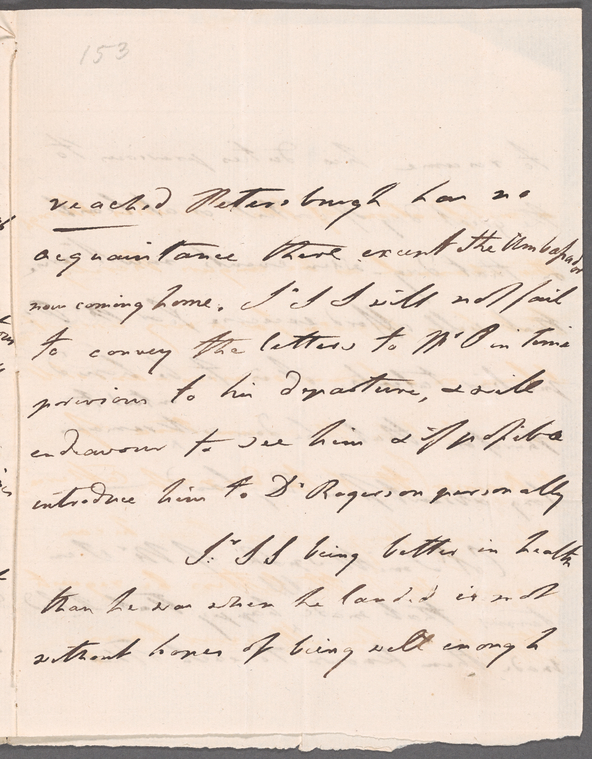 153
reached Petersburgh has no
acquaintance there except the Ambassador
now coming home. Sr S S will not fail
to convey the letters to Mr P in time
previous to his departure, & will
endeavour to see him & if possible
introduce him to Dr Rogerson personally
Sr S S being better in health
than he was when he landed is not
without hopes of being well enough